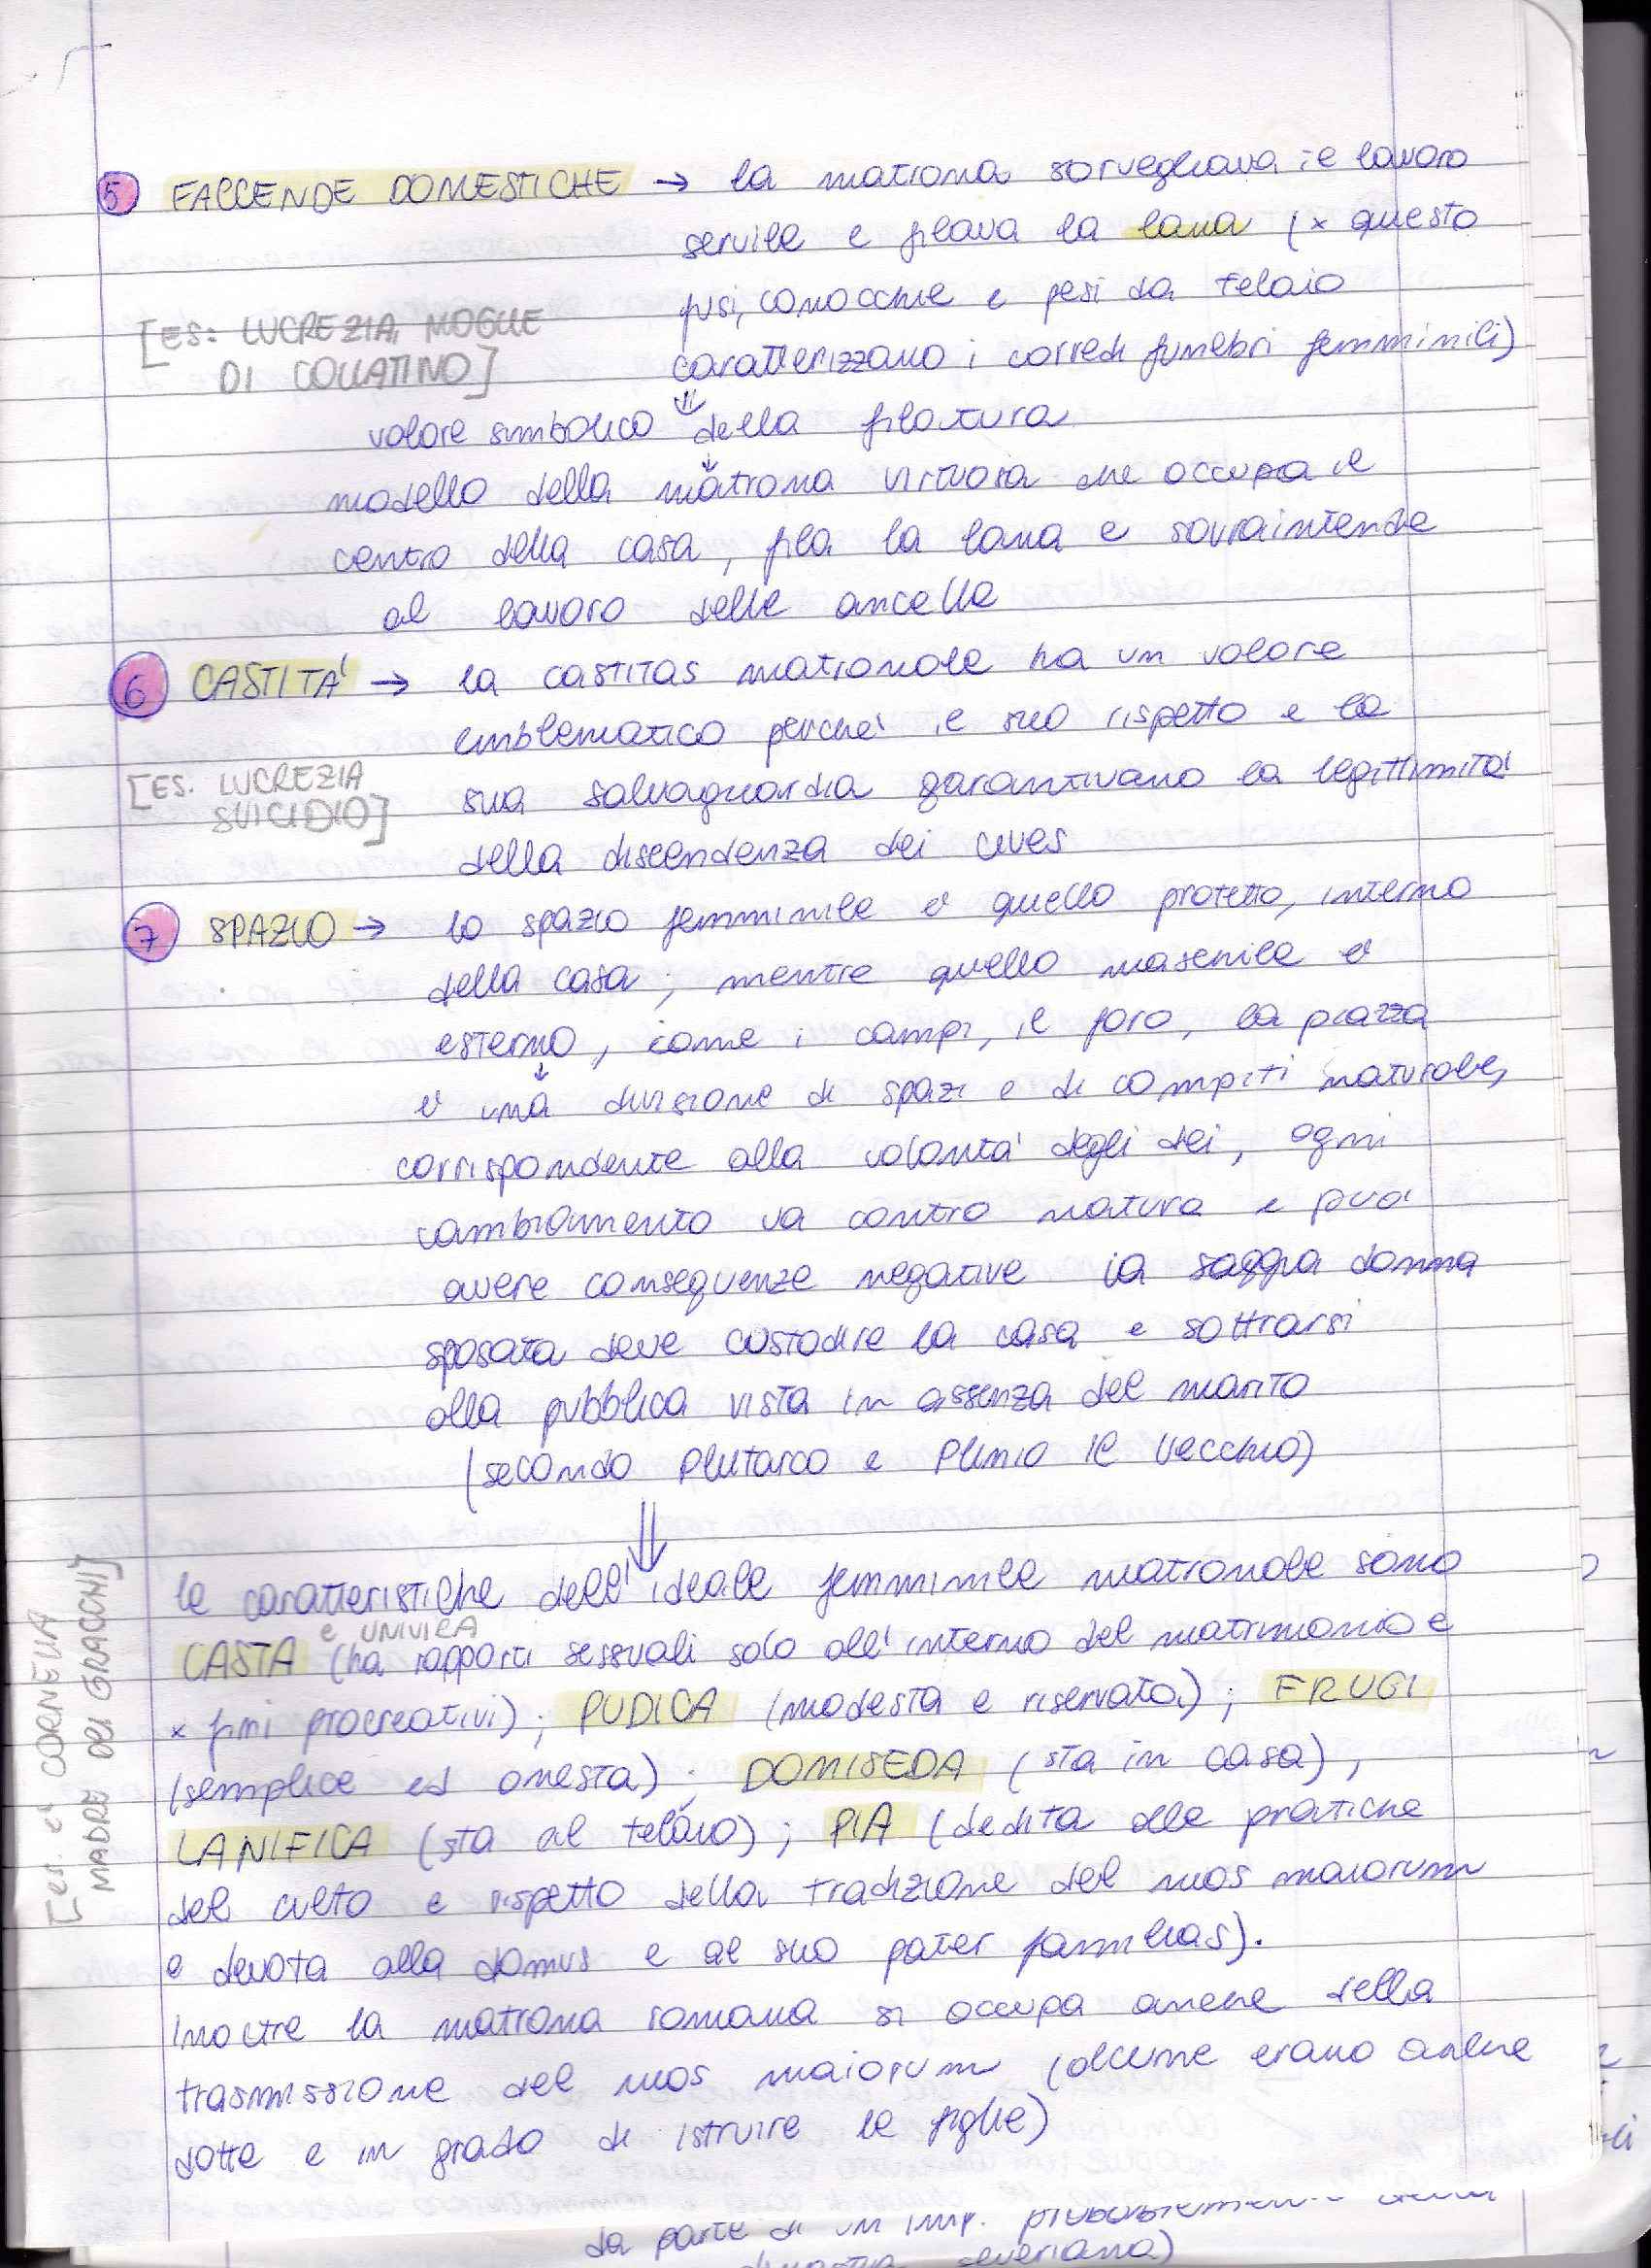 5 FACCENDE DOMESTICHE → la matrona sorvegliava il lavoro
servile e filava la lana (x questo
fusi, conocchie e pesi da telaio
[ES: LUCREZIA MOGLIE
caratterizzano i corredi funebri femminili)
DI COLLATINO]
valore simbolico della filatura
modello della matrona virtuosa che occupa il
centro della casa, fila la lana e sovraintende
al lavoro delle ancelle
6 CASTITA' → la castitas matronale ha un valore
emblematico perche' il suo rispetto e la
[ES. LUCREZIA
sua salvaguardia garantivano la legittimita'
SUICIDIO]
della discendenza dei cives
7 SPAZIO → lo spazio femminile e' quello protetto, interno
della casa; mentre quello maschile e'
esterno, come i campi, il foro, la piazza
↓
e' una divisione di spazi e di compiti naturale,
corrispondente alla volonta' degli dei, ogni
cambiamento va contro natura e puo'
avere conseguenze negative la saggia donna
sposata deve custodire la casa e sottrarsi
alla pubblica vista in assenza del marito
(secondo Plutarco e Plinio il Vecchio)
⇓
le caratteristiche dell'ideale femminile matronale sono
e UNIVIRA
CASTA (ha rapporti sessuali solo all'interno del matrimonio e
x fini procreativi); PUDICA (modesta e riservata); FRUGI
(semplice ed onesta); DOMISEDA (sta in casa),
LANIFICA (sta al telaio); PIA (dedita alle pratiche
del culto e rispetto della tradizione del mos maiorum
e devota alla domus e al suo pater familias).
Inoltre la matrona romana si occupa anche della
trasmissione del mos maiorum (alcune erano anche
dotte e in grado di istruire le figlie)
[es. e' CORNELIA
MADRE DEI GRACCHI]
da parte di un imp. probabilmente della
dinastia severiana)